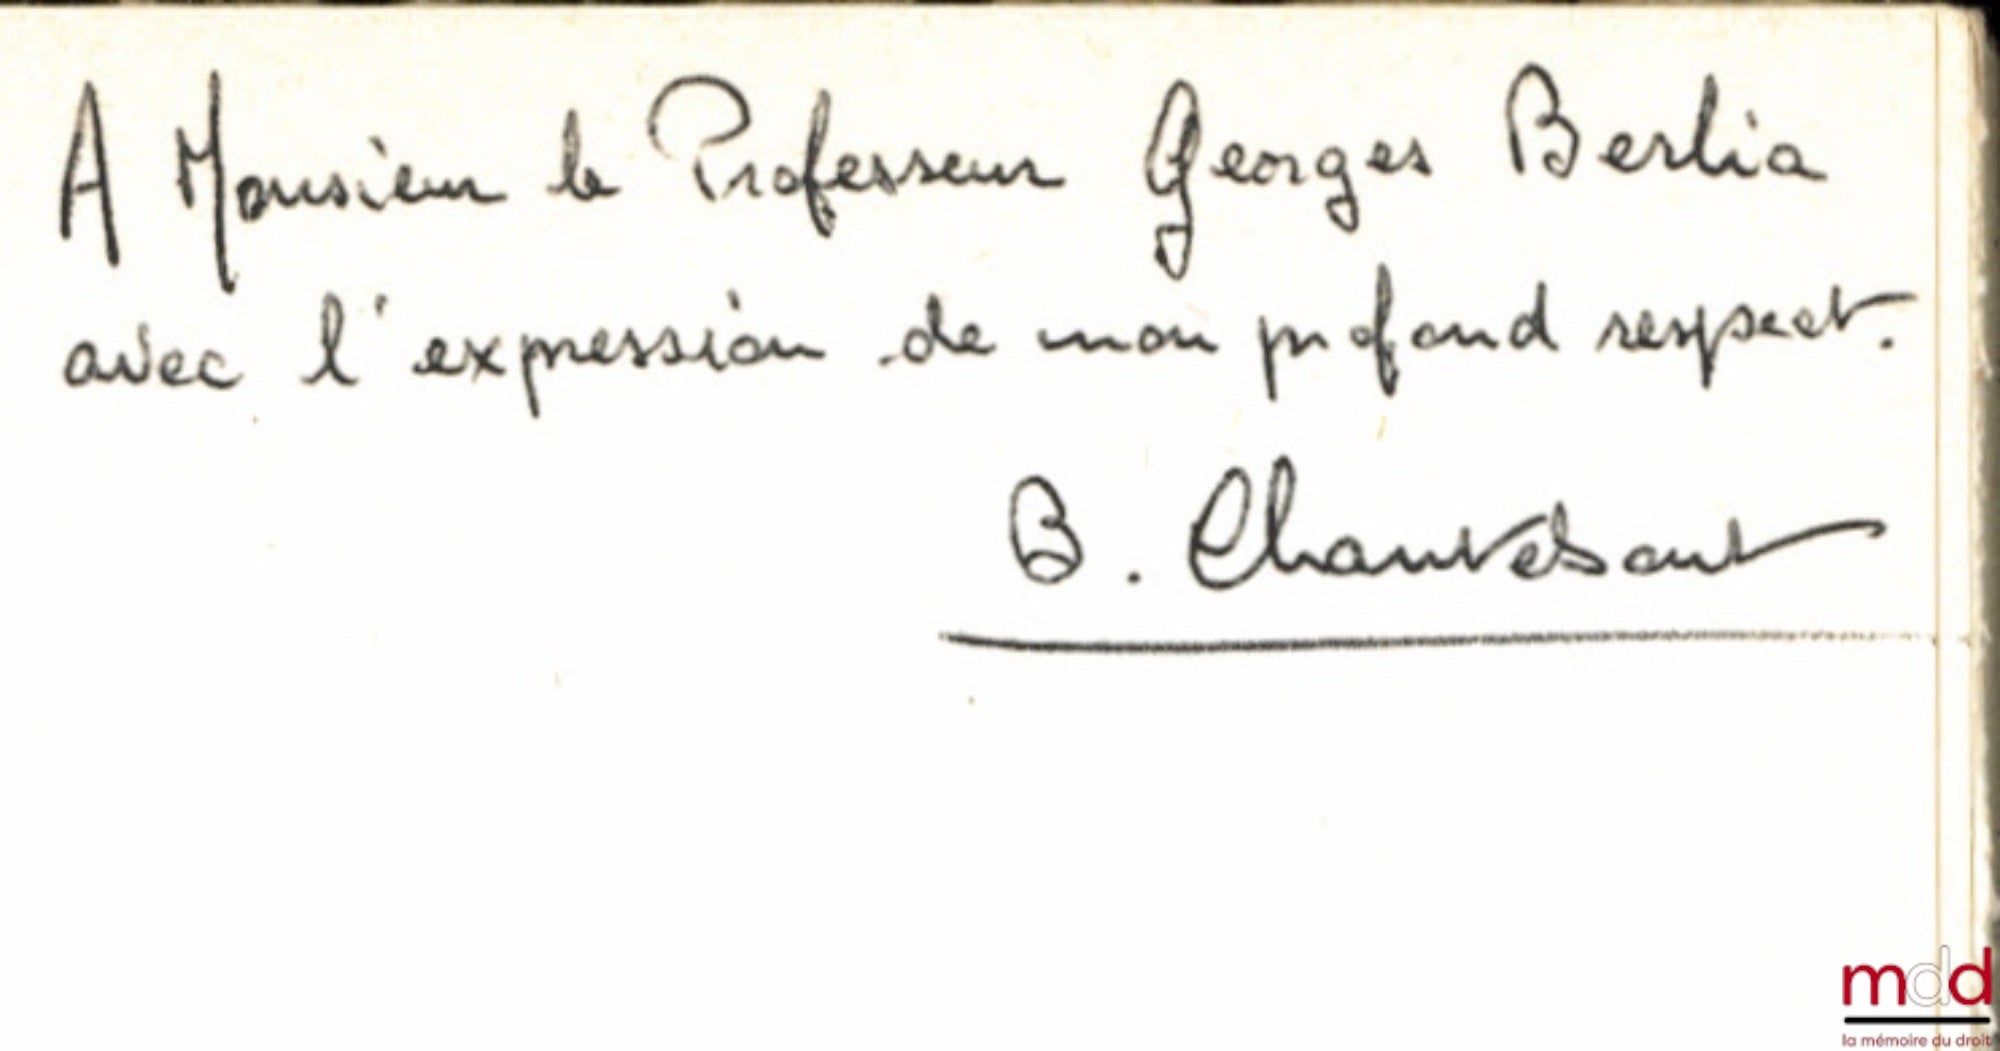 A Monsieur le Professeur Georges Berlia
avec l'expression de mon profond respect.
B. Chantebout
mdd
la mémoire du droit